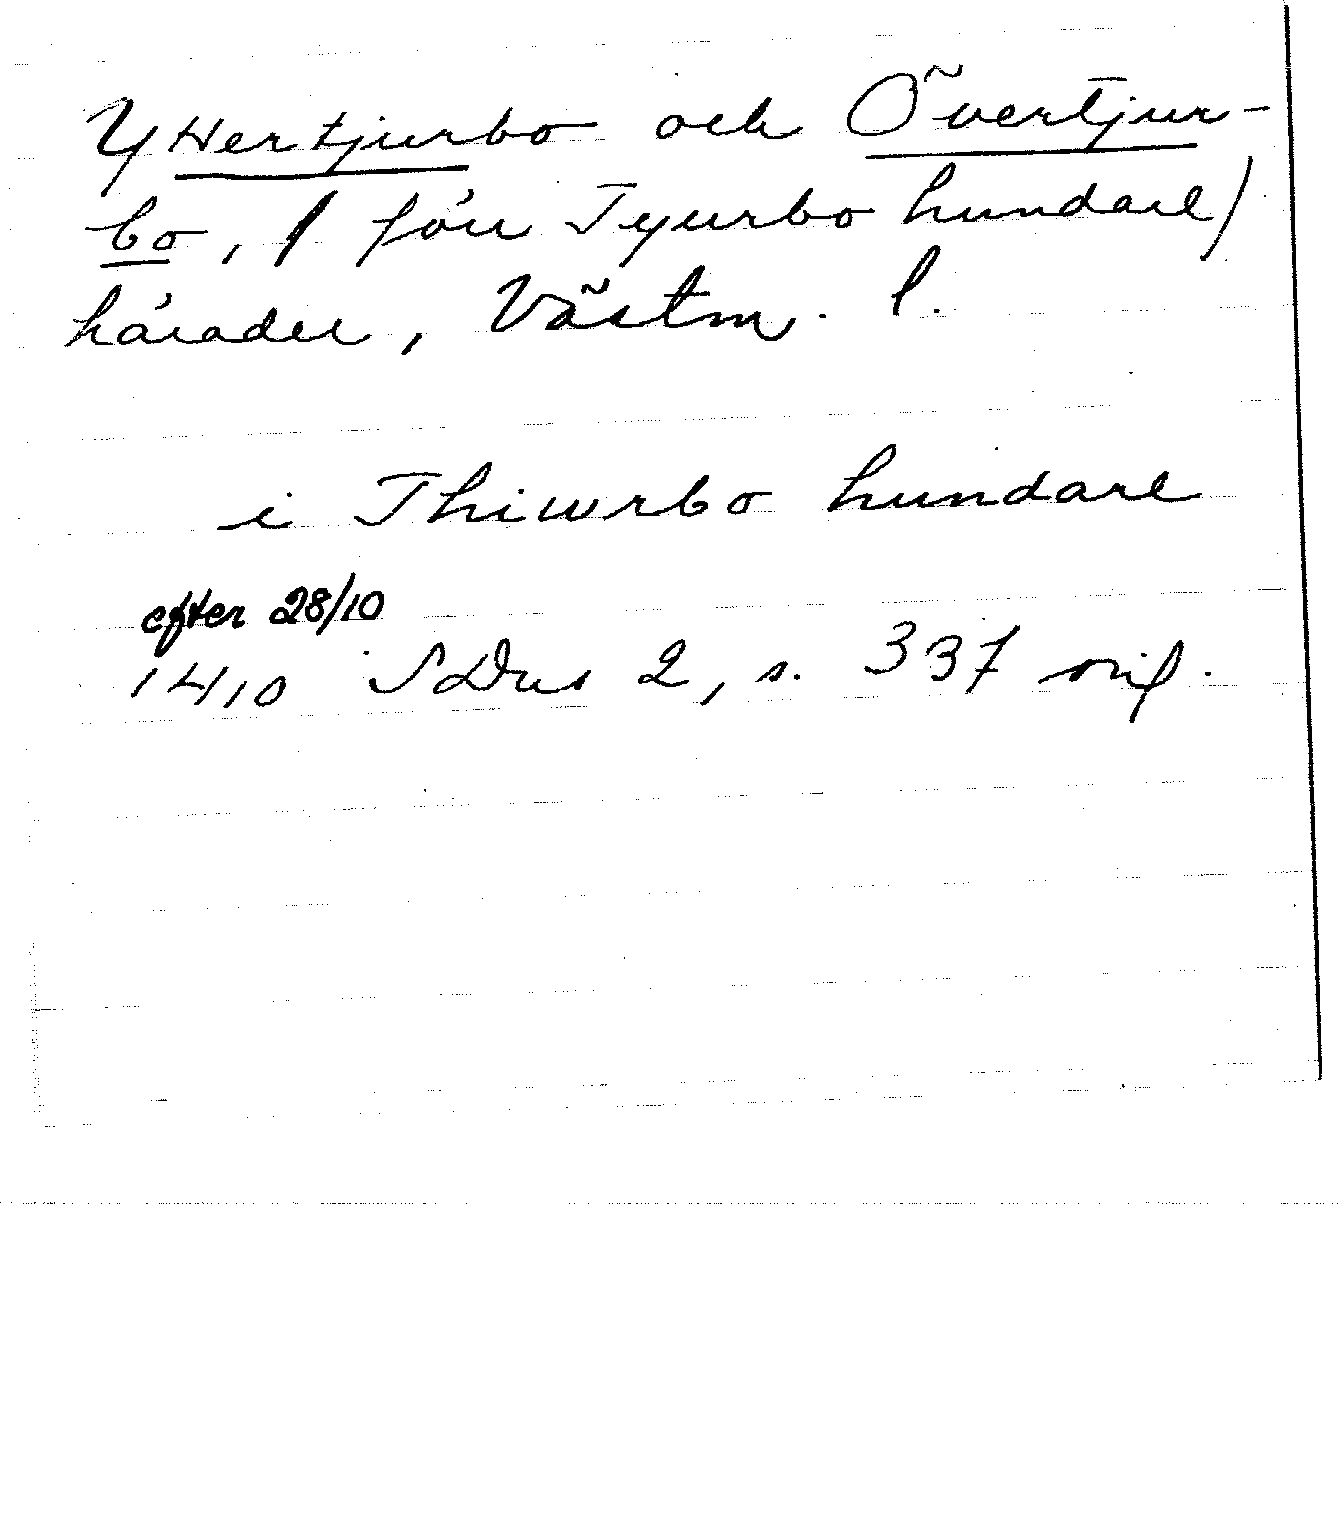 Yttertjurbo och Övertjur-
bo, / förr Tyurbo hundare /
härader, Västm. l.
i Thiwrbo hundare
efter 28/10
1410 SDns 2, s. 337 orig.